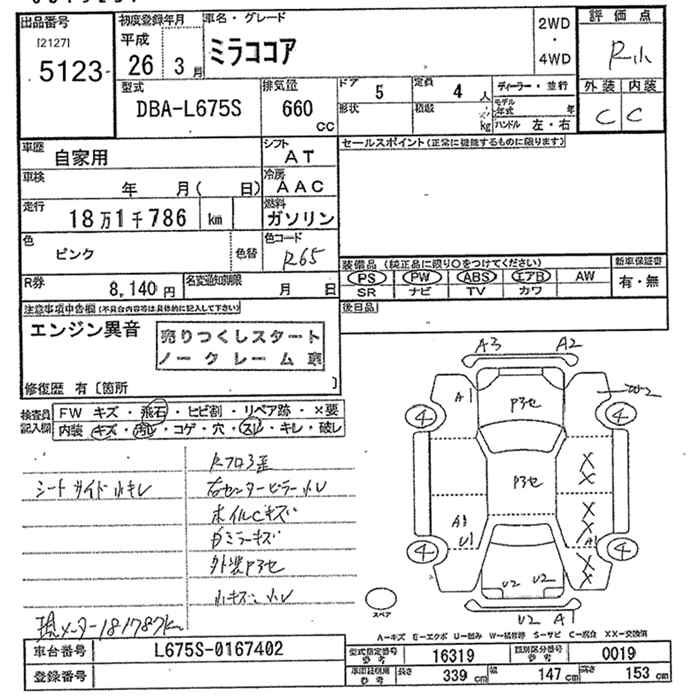 出品番号
[2127]
5123
初度登録年月
平成
26 3月
車名・グレード
ミラココア
2WD
・
4WD
評価点
R小
外装 内装
C C
型式
DBA-L675S
排気量
660
CC
ドア 5
定員 4 人
形状
積載 kg
ディーラー・並行
モデル年式 年
ハンドル 左・右
車歴
自家用
シフト
AT
セールスポイント(正常に機能するものに限ります)
車検
年 月( 日)
冷房
AAC
走行
18万1千786 km
燃料
ガソリン
色
ピンク
色替
色コード
R65
装備品(純正品に限り○をつけてください)
PS PW ABS エアB AW
SR ナビ TV カワ
新車保証書
有・無
R券
8,140円
名変通知期限
月 日
後日品
注意事項申告欄(不具合内容等は具体的に記入して下さい)
エンジン異音
売りつくしスタート
ノークレーム車
修復歴 有[箇所
検査員記入欄
FW キズ・飛石・ヒビ割・リペア跡・×要
内装 キズ・汚レ・コゲ・穴・スレ・キレ・破レ
シートサイド小キレ
Rフロア歪
右センターピラー小凹
ホイルCキズ
Dミラーキズ
外装Pヨセ
小キズ・小凹
現メーター181787km
A3 A2
A1
Pヨセ
W2
4 4
Pヨセ
X
X
X
X
A1
U1
A1
X
X
4 4
U2 U2
U2 A1
スペア
A−キズ E−エクボ U−凹み W−補修跡 S−サビ C−腐食 XX−交換済
車台番号
L675S-0167402
登録番号
型式指定番号
参考
16319
類別区分番号
参考
0019
車両証明用
参考
長さ 339 cm
幅 147 cm
高さ 153 cm